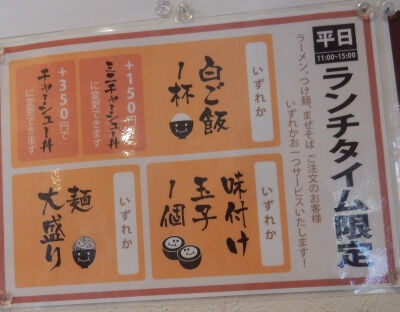 平日
11:00~15:00
ランチタイム限定
ラーメン、つけ麺、まぜそば ご注文のお客様
いずれかお一つサービスいたします!
いずれか
白ご飯
1杯
+150円で
ミニチャーシュー丼
に変更できます
+350円で
チャーシュー丼
に変更できます
いずれか
味付け
玉子
1個
いずれか
麺
大盛り